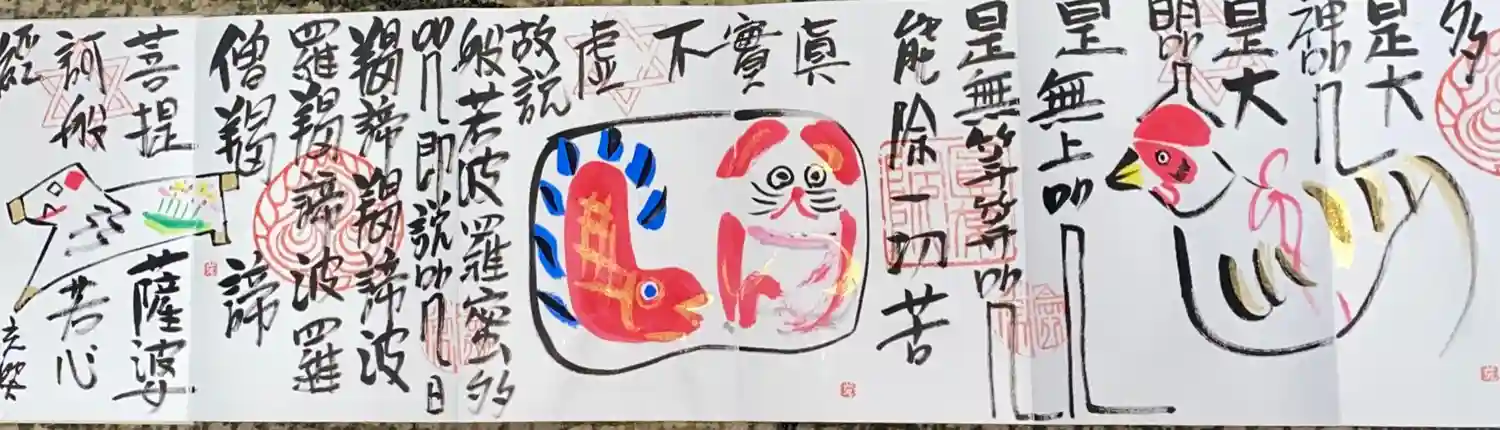 多
是大
神咒
是大
明咒
是無上咒
是無等等咒
能除一切苦
眞實不虛
故説
般若波羅蜜多
咒即説咒曰
羯諦羯諦波
羅羯諦波羅
僧羯諦
菩提薩婆
訶般若心
經